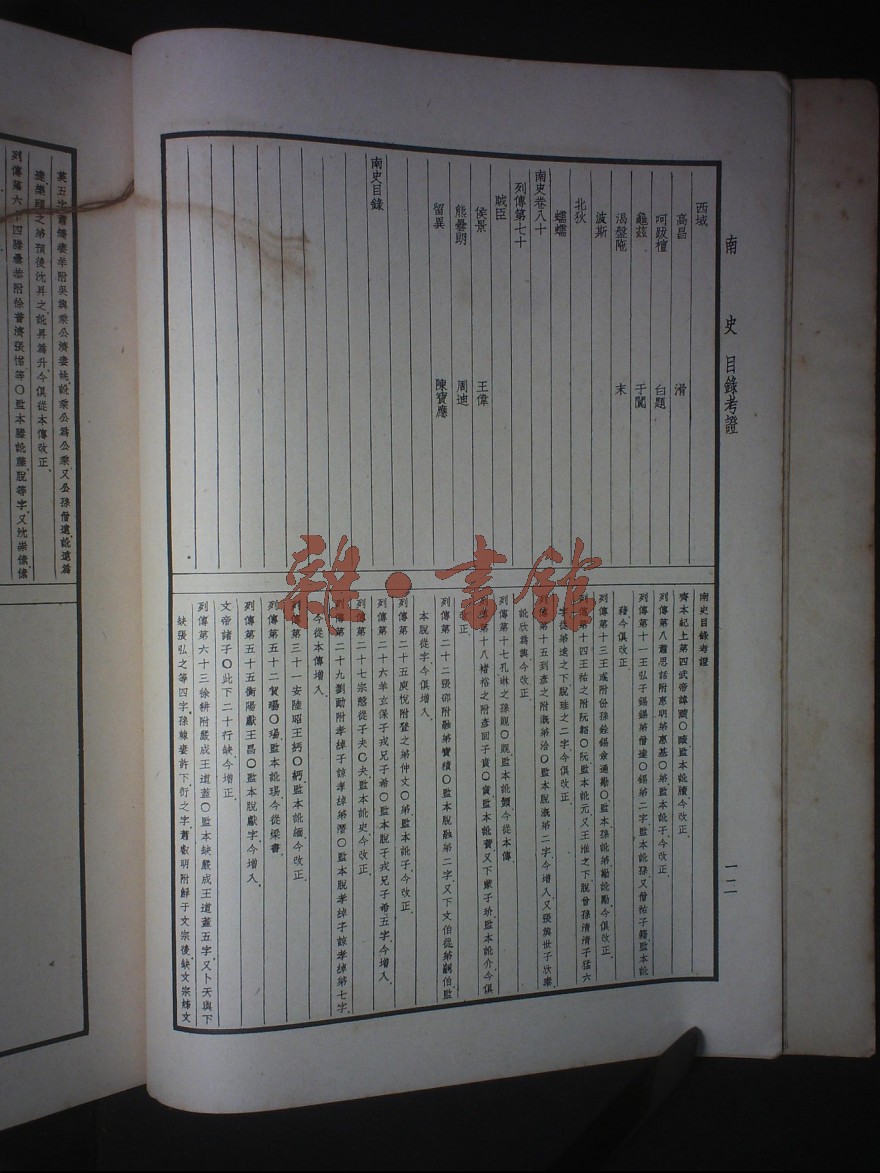 南史 目錄考證
一二
西域
高昌 滑
呵跋檀 白題
龜茲 于闐
渴盤陁 末
波斯
北狄
蠕蠕
南史卷八十
列傳第七十
賊臣
侯景 王偉
熊曇朗 周迪
留異 陳寶應
南史目錄
南史目錄考證
齊本紀上第四武帝諱賾〇賾監本訛
今改正
列傳第八蕭思話附惠明弟惠基〇弟監本訛子今改正
列傳第十一王弘子錫錫弟僧達〇錫弟二字監本訛孫又僧祐子籍監本訛
藉今俱改正
列傳第十三王彧附份孫銓錫僉通勱〇監本孫訛弟勱訛勵今俱改正
列傳第十四王裕之附阮韜〇阮監本訛元又王准之下脫曾孫清清子猛六
字從弟逡之下脫珪之二字今俱改正
列傳第十五到彥之附溉弟洽〇監本脫溉弟二字今增入又張
世子欣泰
訛欣為興今改正
列傳第十七孔琳之孫覬〇覬監本訛顗今從本傳
列傳第十八褚裕之附彥回子賁〇賁監本訛賷又下蒙子玠監本訛介今俱
改正
列傳第二十二張邵附融弟寶積〇監本脫融弟二字又下文伯從弟嗣伯監
本脫從字今俱增入
列傳第二十五庾悅附登之弟仲文〇弟監本訛子今改正
列傳第二十六羊玄保子戎兄子希〇監本脫子戎兄子希五字今增入
列傳第二十七宗愨從子夬〇夬監本訛史今改正
列傳第二十九劉勔附孝綽子諒孝綽弟潛〇監本脫孝綽子諒孝綽弟七字
今從本傳增入
列傳第三十一安陸昭王緬〇緬監本訛
今改正
列傳第五十二賀瑒〇瑒監本訛
今從梁書
列傳第五十五衡陽獻王昌〇監本脫獻字今增入
文帝諸子〇此下二十行缺今增正
列傳第六十三徐耕附嚴成王道蓋〇監本缺嚴成王道蓋五字又卜天與下
缺張弘之等四字孫棘妻許下衍之字蕭叡明附鮮于文宗後缺文宗姊文
英五字蕭矯妻羊附吳興乘公濟妻姚訛乘公為公乘又公孫僧遠訛遠為
達樂頤之弟預後沈昇之訛昇為升今俱從本傳改正
列傳第六十四滕曇恭附徐普濟張悌等〇監本滕訛藤脫等字又沈崇傃傃
雜·書館